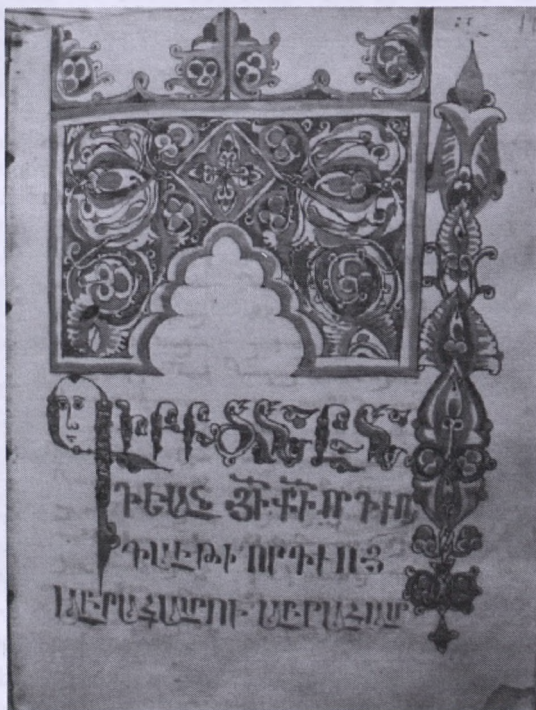 ԳԻՐՔ ԾՆԸՆ
ԴԵԱՆ ՅԻ ՔԻ ՈՐԴՒՈ
ԴԱՒԹԻ ՈՐԴՒՈՅ
ԱԲՐԱՀԱՄՈՒ ԱԲՐԱՀԱՄ